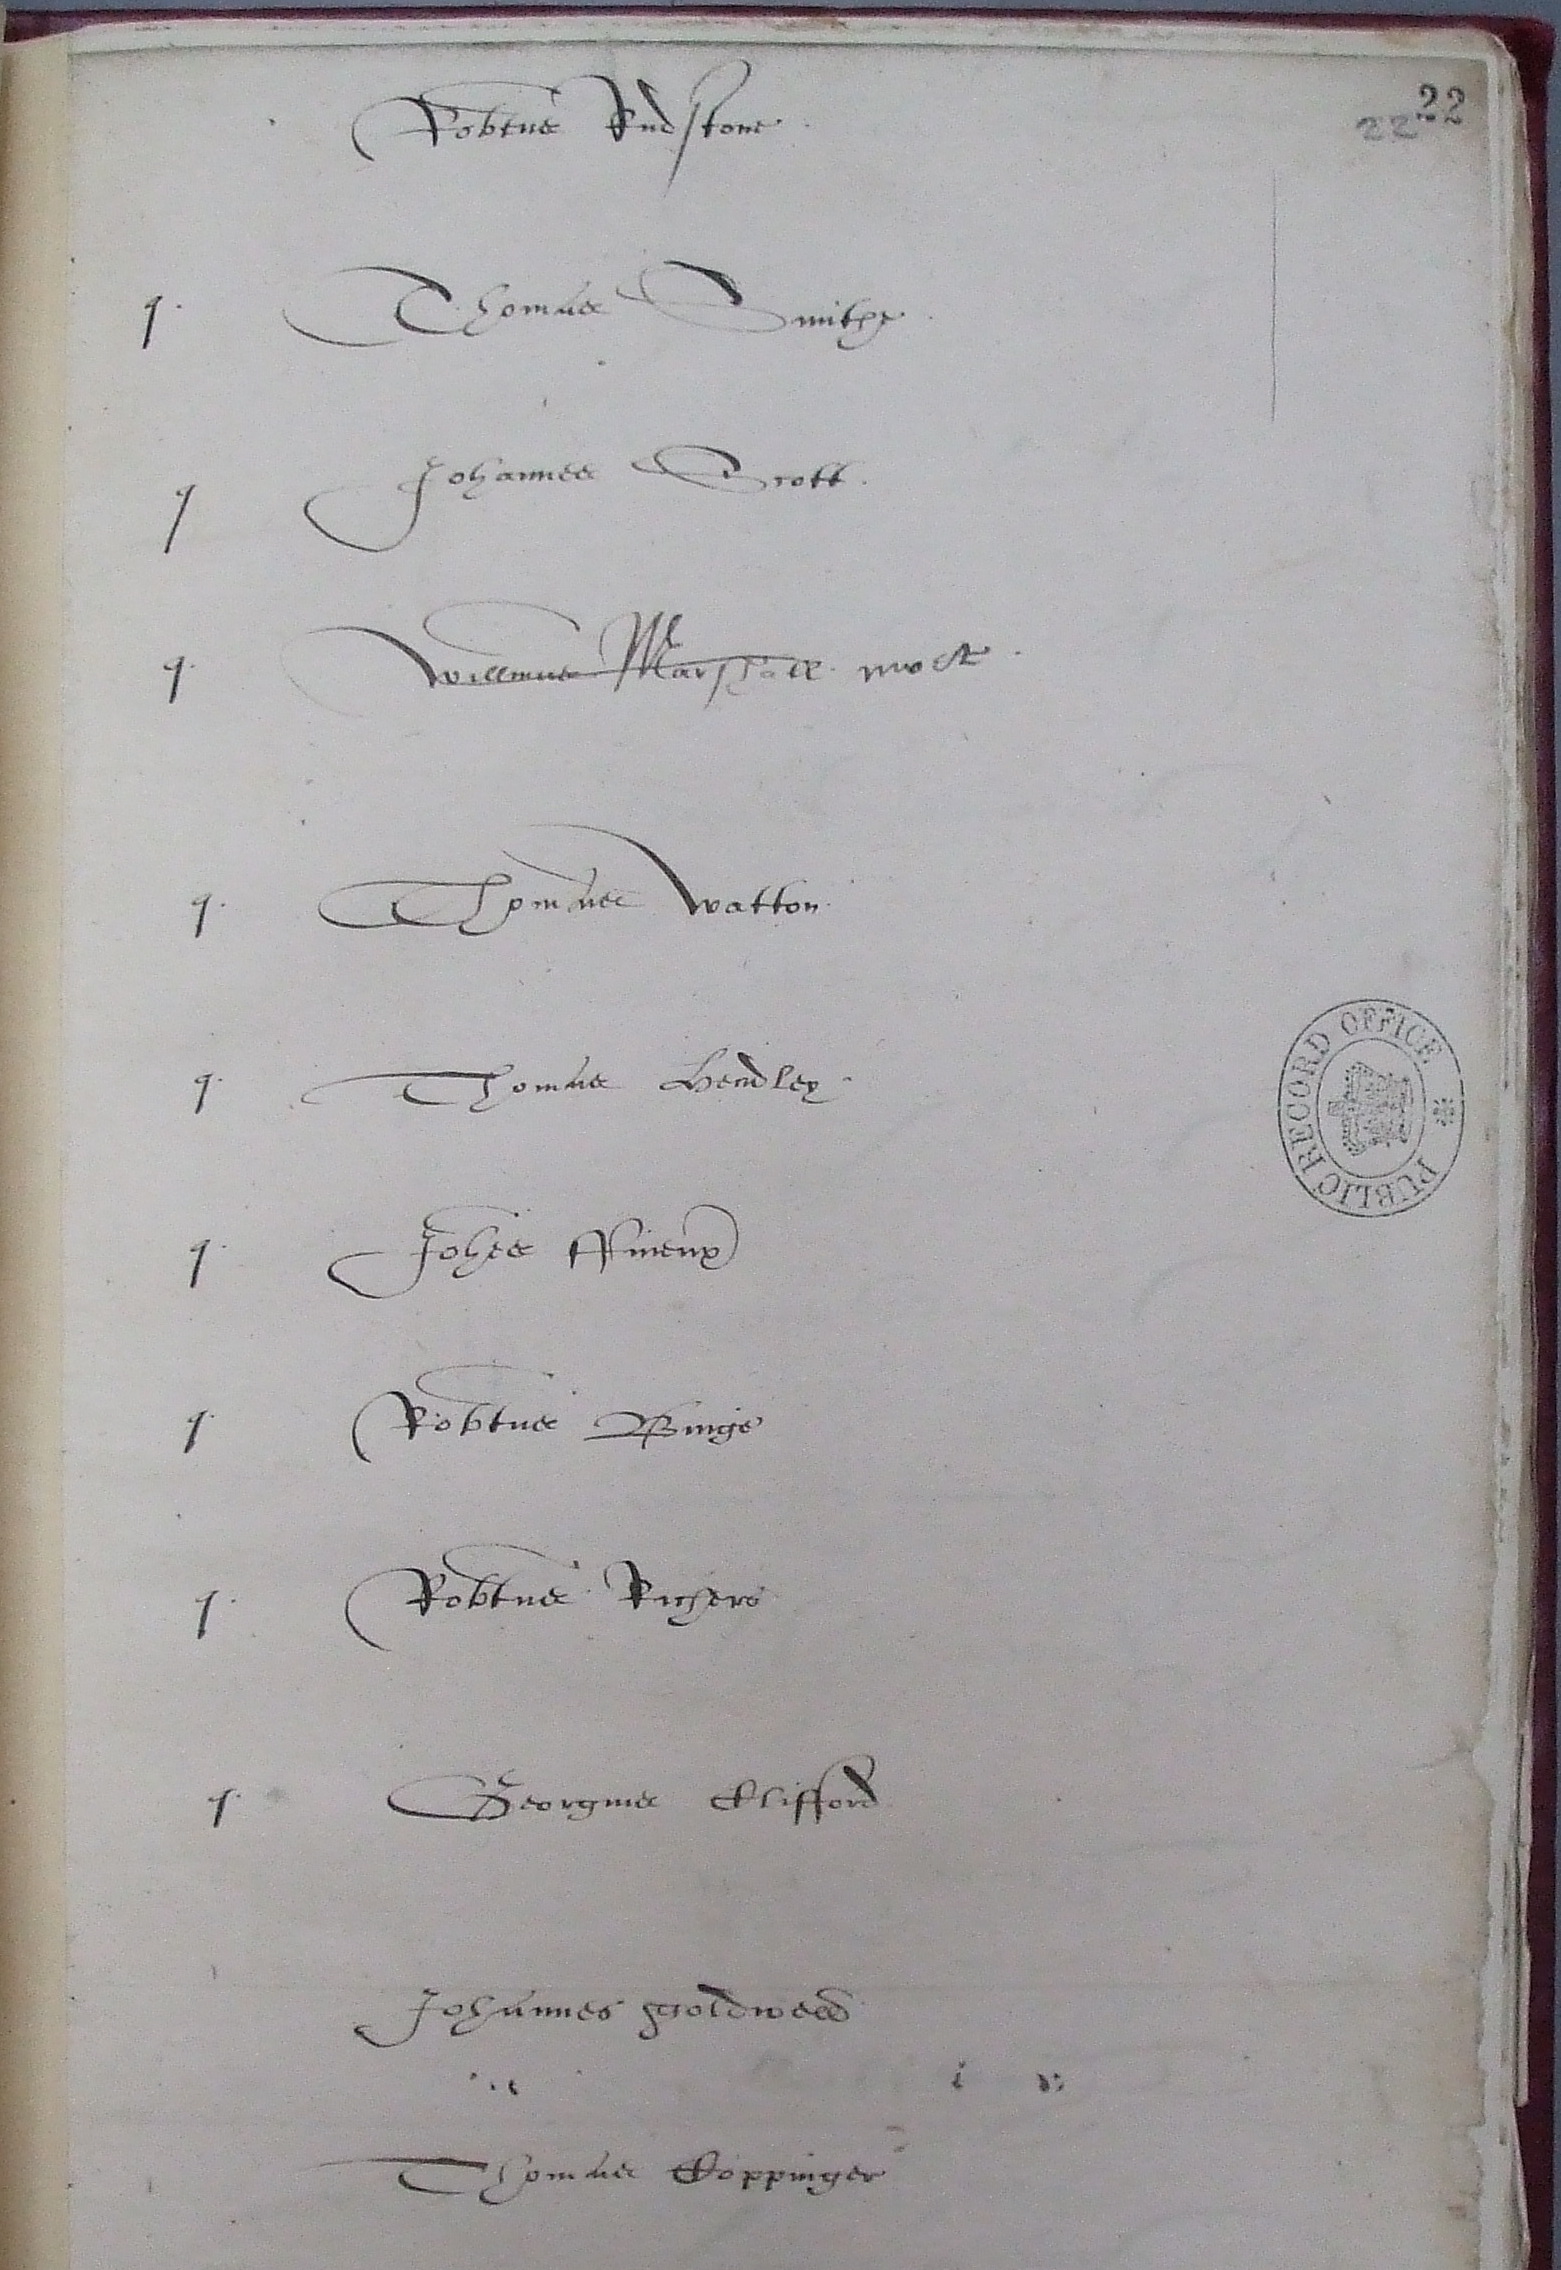 22
22
Robtus Rudstone
q. Thomas Smithe
q Johannes Scott.
q. Willmus Marshall. mort
q. Thomas Watton.
q. Thomas Hendley.
q. Johes Ffineux
q. Robtus Binge
q. Robtus Richers
q. Georgius Clifford
PUBLIC RECORD OFFICE
Johannes Goldwell
Thomas Coppinger